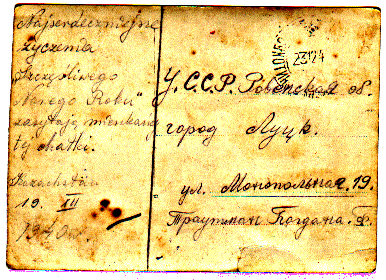 Najserdeczniejsze
życzenia
Szczęśliwego
"Nowego Roku"
zasyłają mieszkańcy
tej chatki.
Kazachstan
19. XII
1940r.
У.С.С.Р. Ровенская об.
город Луцк.
ул. Монопольная, 19.
Траутман Богдана. Ф.